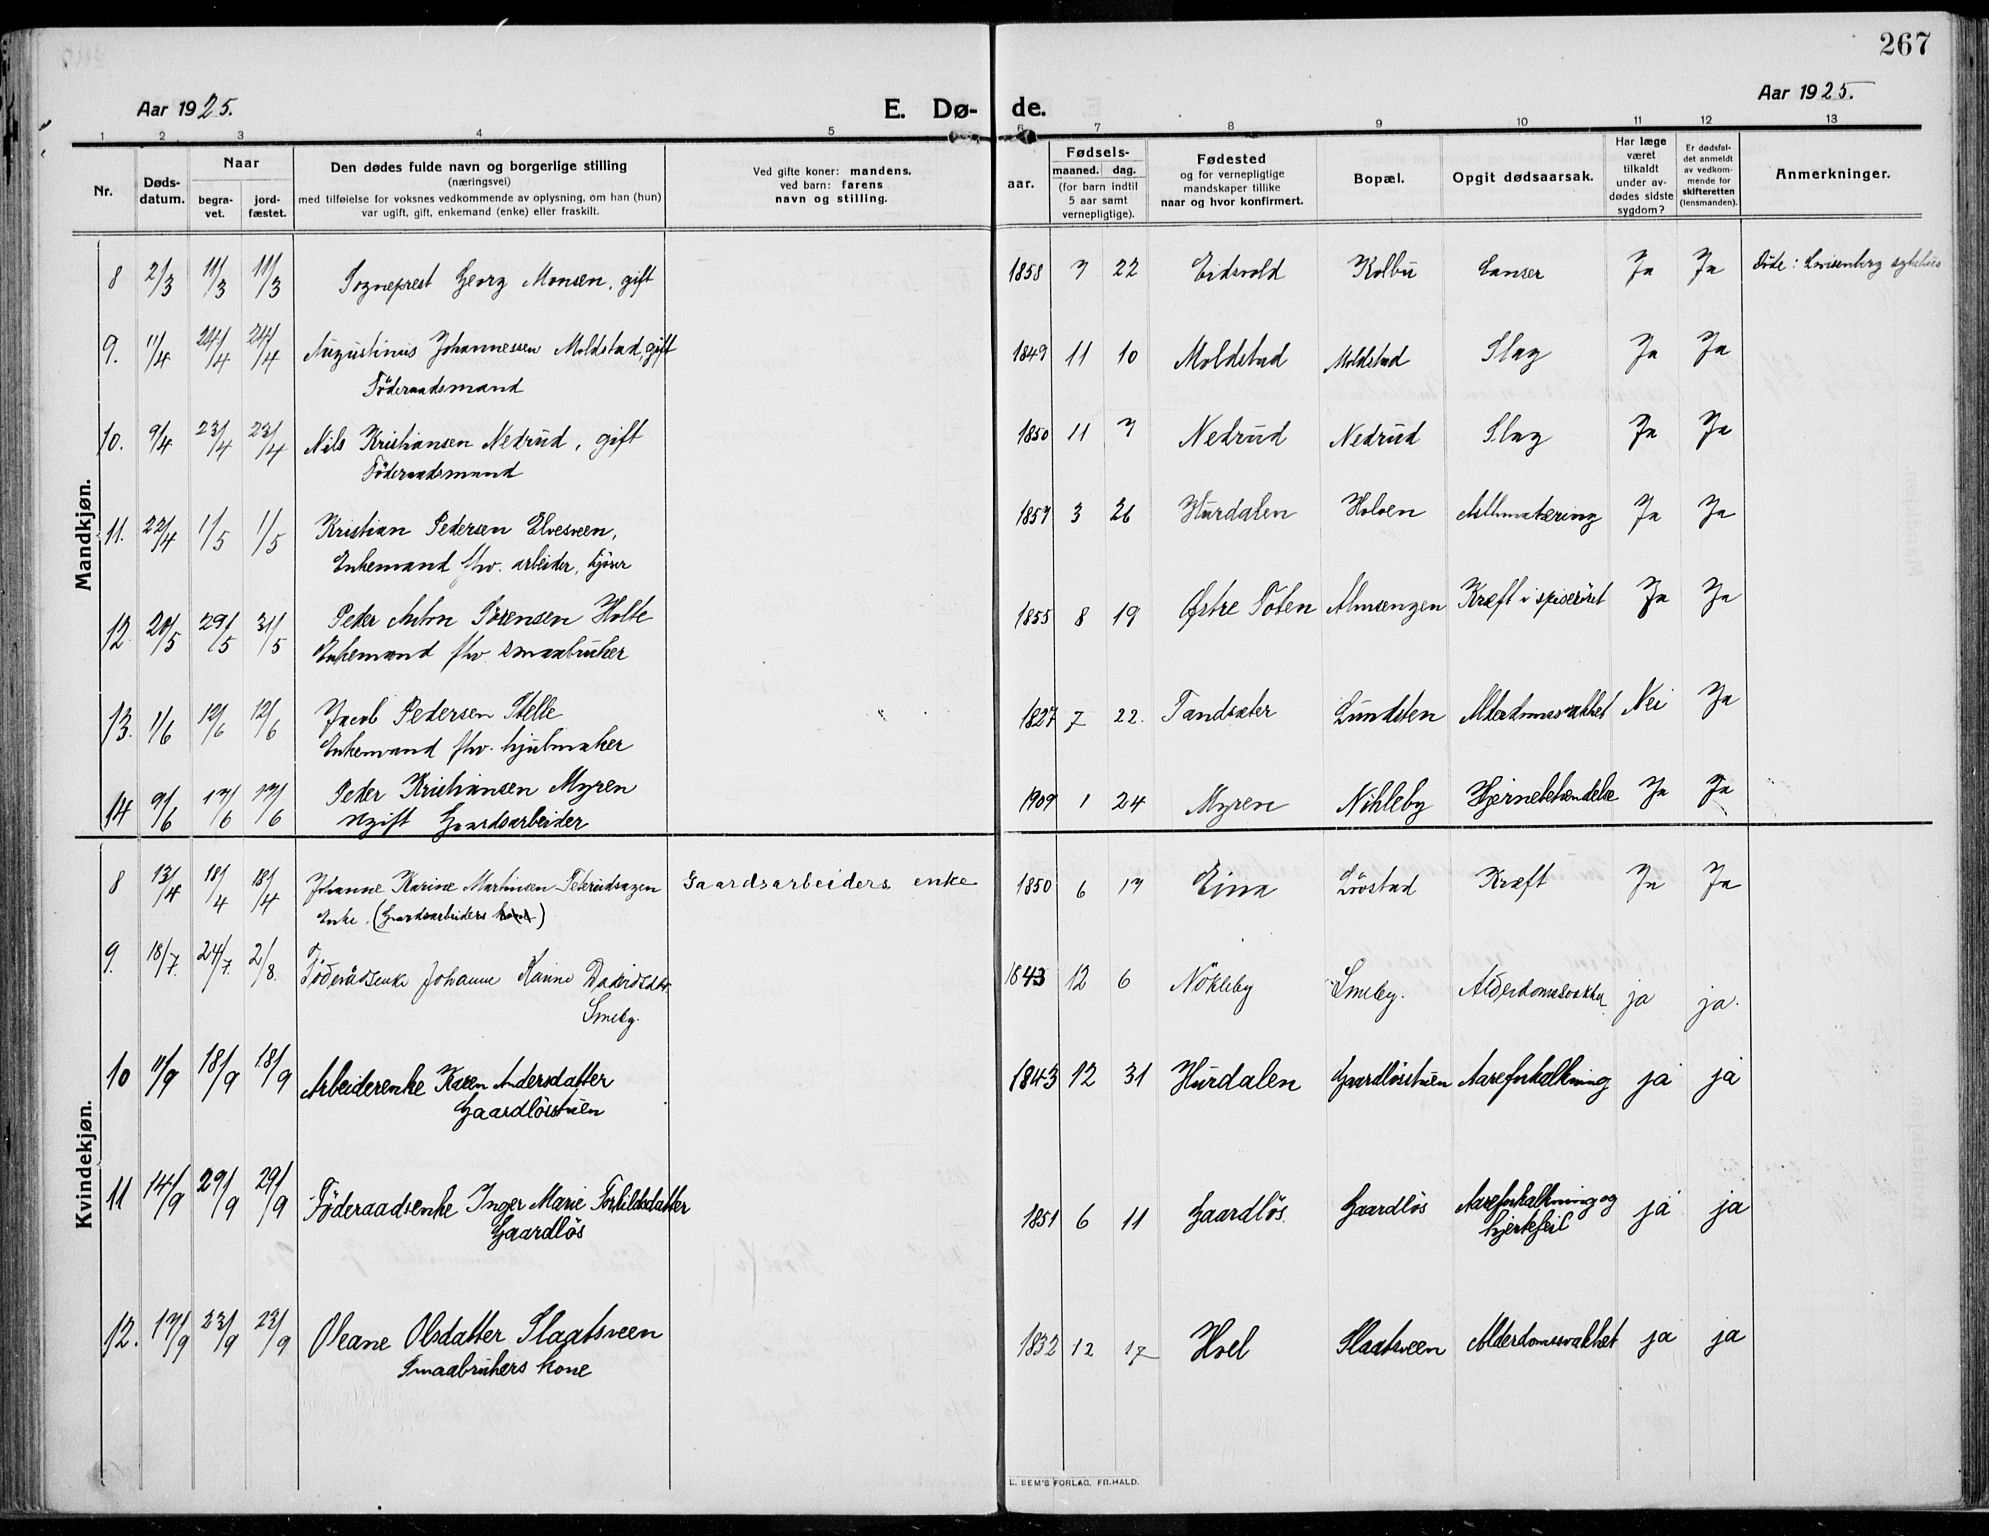 267
Aar 1925.
E. Dø- de.
Aar 1925.
1 2 3 4 5 6 7 8 9 10 11 12 13
Nr.
Døds-
datum.
Naar
begra-
vet.
jord-
fæstet.
Den dødes fulde navn og borgerlige stilling
(næringsvei)
med tilføielse for voksnes vedkommende av oplysning, om han (hun)
var ugift, gift, enkemand (enke) eller fraskilt.
Ved gifte koner: mandens,
ved barn: farens
navn og stilling.
Fødsels-
aar. maaned. dag.
(for barn indtil
5 aar samt
vernepligtige).
Fødested
og for vernepligtige
mandskaper tillike
naar og hvor konfirmert.
Bopæl.
Opgit dødsaarsak.
Har læge
været
tilkaldt
under av-
dødes sidste
sygdom?
Er dødsfal-
det anmeldt
av vedkom-
mende for
skifteretten
(lensmanden).
Anmerkninger.
Mandkjøn.
8 2/3 11/3 11/3 Sogneprest Georg Monsen, gift 1858 7 22 Eidsvold Kolbu Canser Ja Ja Døde: Lovisenberg sykehus
9. 11/4 24/4 24/4 Augustinus Johannessen Moldstad, gift 1849 11 10 Moldstad Moldstad Slag Ja Ja
Föderaadsmand
10. 9/4 23/4 23/4 Nils Kristiansen Nedrud, gift 1850 11 7 Nedrud Nedrud Slag Ja Ja
Föderaadsmand
11. 22/4 1/5 1/5 Kristian Pedersen Elvesveen, 1857 3 26 Hurdalen Holven Asthmatæring Ja Ja
Enkemand fhv. arbeider, kjører
12. 20/5 29/5 31/5 Peder Anton Sörensen Holte 1855 8 19 Østre Toten Almsengen Kræft i spiseröret Ja Ja
Enkemand fhv. smaabruker
13. 1/6 12/6 12/6 Jacob Pedersen Stelle 1827 7 22. Tandsæter Lundsten Alderdomssvakhet Nei Ja
Enkemand fhv. hjulmaker
14 9/6 17/6 17/6 Peder Kristiansen Myren 1909 1 24 Myren Nökleby Hjernebetændelse Ja Ja
ugift Gaardsarbeider
Kvindekjøn.
8 13/4 18/4 18/4 Johanne Karine Martinsen Petersidsagen Gaardsarbeiders enke 1850 6 17 Eina Lövstad Kræft Ja Ja
Enke. (Gaardsarbeiders kone)
9. 18/7. 24/7. 2/8. Föderådsenke Johanne Karine Davidsdtr. 1843 12 6 Nökleby Smeby. Alderdomssvakhet ja ja.
Smeby.
10 11/9 18/9 18/9 Arbeiderenke Karen Andersdatter 1843 12 31 Hurdalen Gaardlösstuen Aareforkalkning ja ja
Gaardlösstuen
11 14/9 29/9 29/9 Föderaadsenke Inger Marie Torkildsdatter 1851 6 11 Gaardlös. Gaardlös Aareforkalkning og ja ja
Gaardlös hjertefeil
12. 17/9 23/9 23/9 Oleane Olsdatter Slaatsveen 1832 12 17 Hoel Slaatsveen Alderdomssvakhet ja ja
Smaabrukers kone
L. BEM'S FORLAG, FR.HALD.